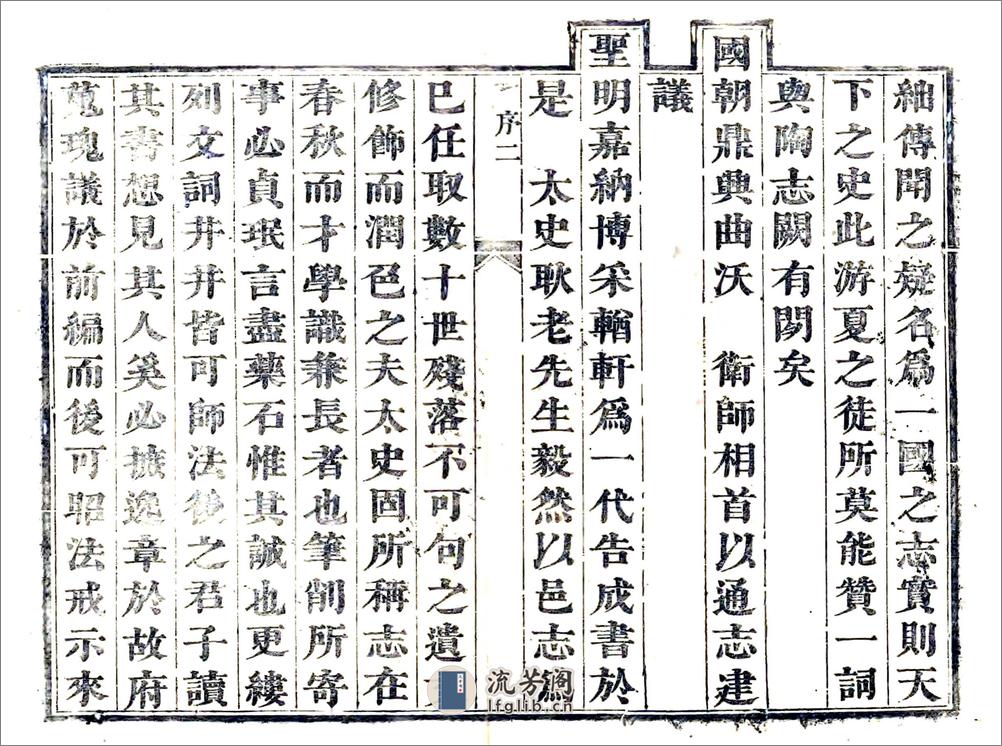 紬傳聞之疑名爲一國之志實則天
下之史此游夏之徒所莫能贊一詞
與陶志闕有閎矣
國朝鼎典曲沃　衛師相首以通志建
議
聖明嘉納博采輶軒爲一代告成書於
是　太史耿老先生毅然以邑志爲
序二
已任取數十世殘落不可句之遺
修飾而潤色之夫太史固所稱志在
春秋而才學識兼長者也筆削所寄
事必貞珉言盡藥石惟其誠也更縷
列文詞井井皆可師法後之君子讀
其書想見其人奚必摭逸章於故府
蒐瑰議於前編而後可昭法戒示來
流芳阁
lfglib.cn